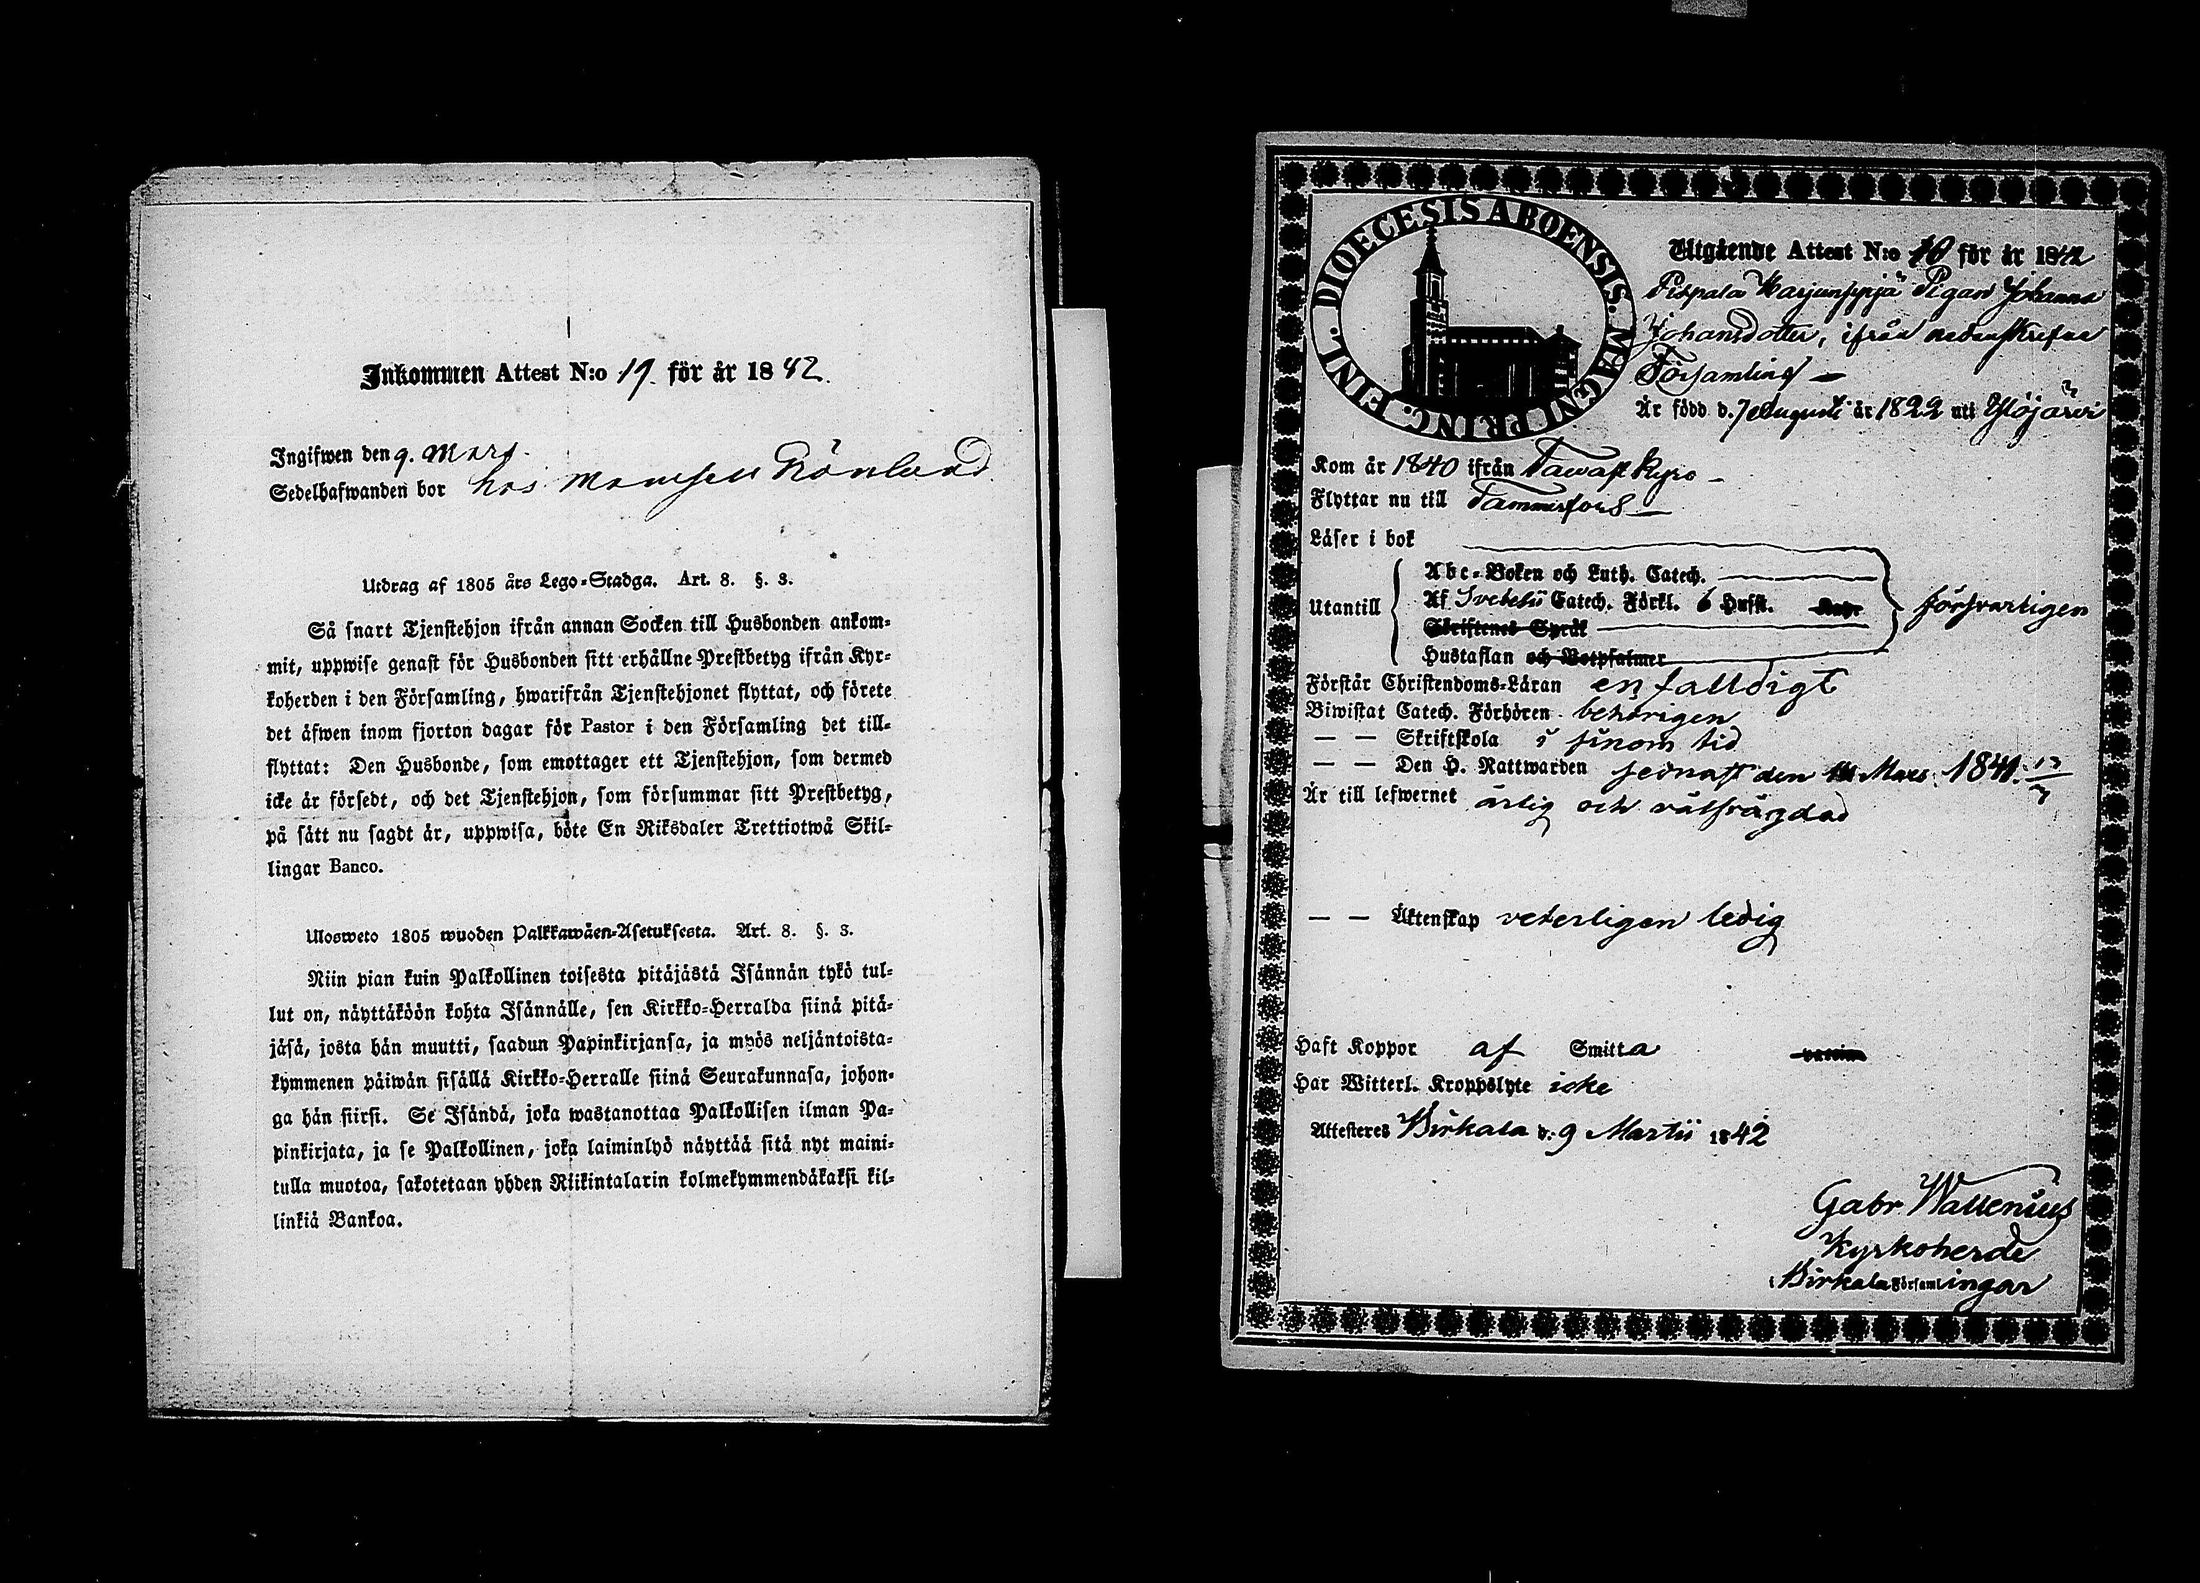 Inkommen Attest N:o 19. för år 1842.
Ingifwen den 9. Mars.
Sedelhafwanden bor hos Mamsell Rönlund
Utdrag af 1805 års Lego-Stadga. Art. 8. §. 3.
Så snart Tjenstehjon ifrån annan Socken till Husbonden ankom-
mit, uppwise genast för Husbonden sitt erhållne Prestbetyg ifrån Kyr-
koherden i den Församling, hwarifrån Tjenstehjonet flyttat, och förete
det äfwen inom fjorton dagar för Pastor i den Församling det till-
flyttat: Den Husbonde, som emottager ett Tjenstehjon, som dermed
icke är försedt, och det Tjenstehjon, som försummar sitt Prestbetyg,
på sätt nu sagdt är, uppwisa, böte En Riksdaler Trettiotwå Skil-
lingar Banco.
Ulosweto 1805 wuoden Palkkawäen-Asetuksesta. Art. 8. §. 3.
Niin pian kuin Palkollinen toisesta pitäjästä Isännän tykö tul-
lut on, näyttäköön kohta Isännälle, sen Kirkko-Herralda siinä pitä-
jäsä, josta hän muutti, saadun Papinkirjansa, ja myös neljäntoista-
kymmenen päiwän sisällä Kirkko-Herralle siinä Seurakunnasa, johon-
ga hän siirsi. Se Isändä, joka wastanottaa Palkollisen ilman Pa-
pinkirjata, ja se Palkollinen, joka laiminlyö näyttää sitä nyt maini-
tulla muotoa, sakotetaan yhden Riikintalarin kolmekymmendäkaksi kil-
linkiä Bankoa.
DIOECESIS ABOENSIS. MAGNI PRINC. FINL.
Utgående Attest N:o 10 för år 1842
Pispala Harjunppjä Pigan Johanna
Johansdotter, ifrån nedanskrefne
Församling
Är född d. 7 Augusti år 1822 uti Ylöjärvi
Kom år 1840 ifrån Tawastkyro
Flyttar nu till Tammerfors
Läser i bok
Abc-Boken och Luth. Catech.
Utantill Af Svebelii Catech. Förkl. 6 Hufst. försvarligen
Skriftenes Språk
Hustaflan och Botpsalmer
Förstår Christendoms-Läran enfalldigt
Biwistat Catech. Förhören behörigen
— — Skriftskola i sinom tid
— — Den H. Nattwarden sednast den Mars 1841.
Är till lefwernet ärlig och välfrägdad
— — Äktenskap veterligen ledig
Haft Koppor af Smitta vaccin
Har Witterl. Kroppslyte icke
Attesteres Birkala d. 9 Martii 1842
Gabr Wallenius
Kyrkoherde
i Birkala Församlingar